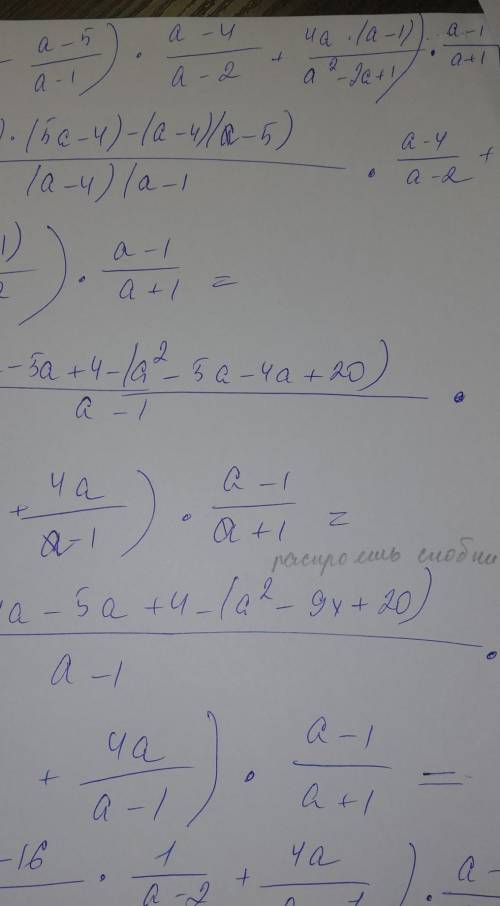 - (a-5)/(a-1) ) · (a-4)/(a-2) + (4a·(a-1))/(a²-2a+1) ) · (a-1)/(a+1)
)·(5a-4)-(a-4)(a-5) / (a-4)(a-1 · (a-4)/(a-2) +
1) ) · (a-1)/(a+1) =
-5a+4-(a²-5a-4a+20) / a-1 ·
+ 4a/(a-1) ) · (a-1)/(a+1) =
a-5a+4-(a²-9x+20) / a-1 ·
+ 4a/(a-1) ) · (a-1)/(a+1) =
-16 · 1/(a-2) + 4a ) · a-